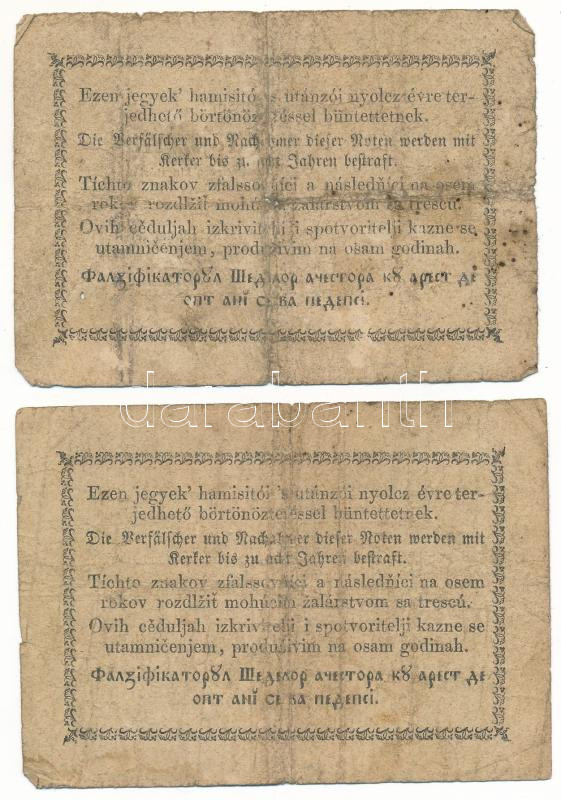 Ezen jegyek' hamisitói 's utánzói nyolcz évre ter-
jedhető börtönöztetéssel büntettetnek.
Die Verfälscher und Nachahmer dieser Noten werden mit
Kerker bis zu acht Jahren bestraft.
Tíchto znakov zfalssovníci a následňíci na osem
rokov rozdlžiť mohúcim žalárstvom sa trescú.
Ovih cěduljah izkrivitelji i spotvoritelji kazne se
utamničenjem, produživim na osam godinah.
Фалꙁіфікаторꙋл Шеделор ачестора кꙋ арест де
опт анї се ва педепсі.
darabanth
Ezen jegyek' hamisitói 's utánzói nyolcz évre ter-
jedhető börtönöztetéssel büntettetnek.
Die Verfälscher und Nachahmer dieser Noten werden mit
Kerker bis zu acht Jahren bestraft.
Tíchto znakov zfalssovníci a následňíci na osem
rokov rozdlžiť mohúcim žalárstvom sa trescú.
Ovih cěduljah izkrivitelji i spotvoritelji kazne se
utamničenjem, produživim na osam godinah.
Фалꙁіфікаторꙋл Шеделор ачестора кꙋ арест де
опт анї се ва педепсі.